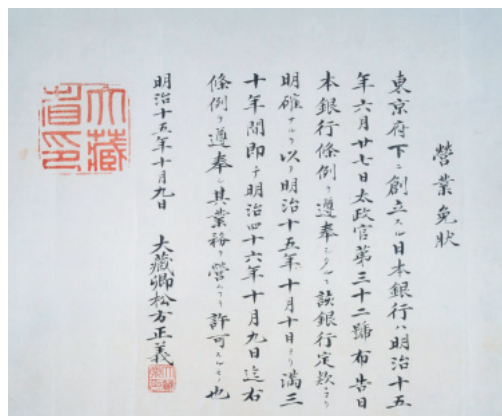 營業免狀
東京府下ニ創立スル日本銀行ハ明治十五
年六月廿七日太政官第三十二號布告日
本銀行條例ヲ遵奉シタルヿ該銀行定款ニヨリ
明確ナルヲ以テ明治十五年十月十日ヨリ滿三
十年間即チ明治四十五年十月九日迄右
條例ヲ遵奉シ其業務ヲ營ムヿヲ許可スルモノ也
明治十五年十月九日 大藏卿松方正義
大藏省印